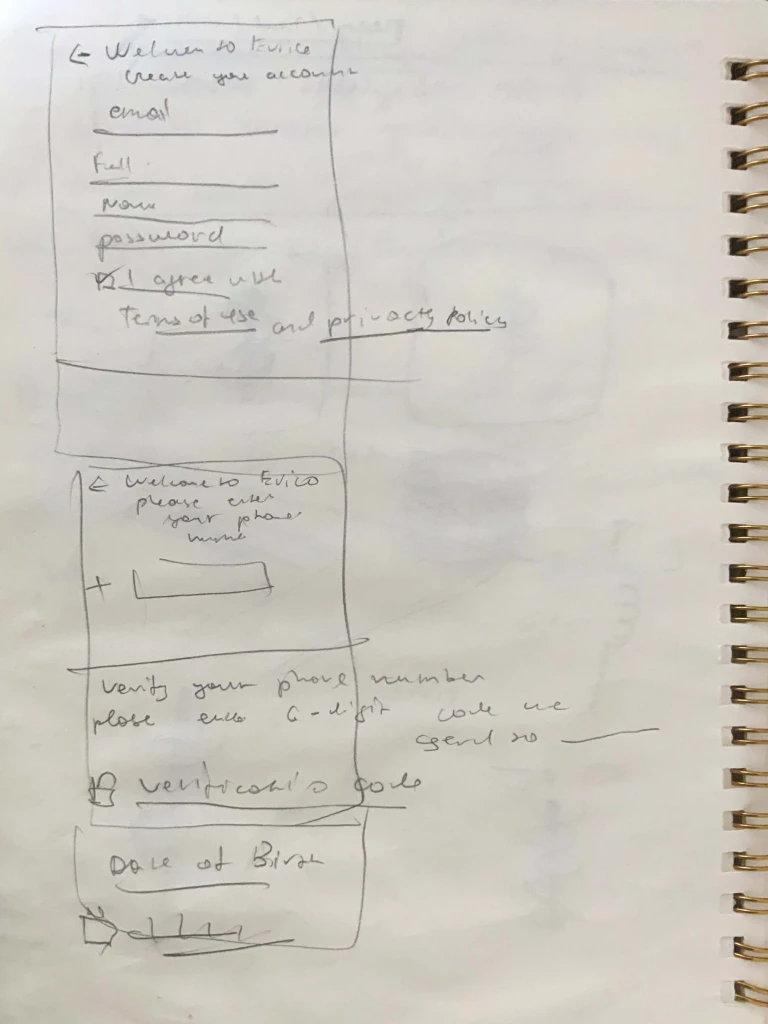 ← Welcom to Evico
create your account
email
Full
Name
password
☑ I agree with
Terms of Use and privacy policy
← Welcome to Evico
please enter
your phone
+
verify your phone number
please enter 6-digit code we
send to
verification code
Date of Birth